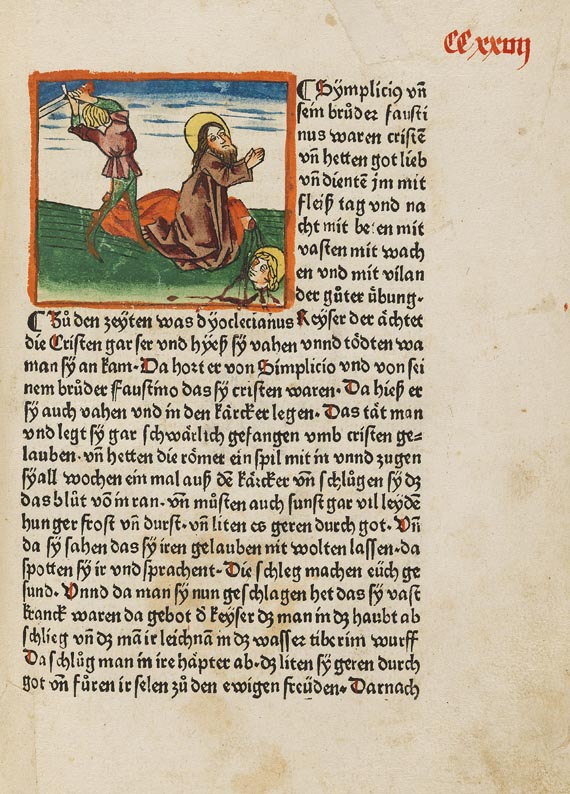 CCxxiiij
¶ Symplici9 vn̄
sem brůder fausti
nus waren cristē
vn̄ hetten got lieb
vn̄ dientē jm mit
fleiß tag vnd na
cht mit beten mit
vasten mit wach
en vnd mit vil an
der gůter übung.
¶ Zů den zeyten was dyoclecianus Keyser der ächtet
die Cristen gar ser vnd hyeß sÿ vahen vnnd tödten wa
man sÿ an kam. Da hort er von Simplicio vnd von sei
nem brůder Faustino das sÿ cristen waren. Da hieß er
sÿ auch vahen vnd in den kärcker legen. Das tät man
vnd legt sÿ gar schwärlich gefangen vmb cristen ge⸗
lauben. vn̄ hetten die römer ein spil mit in vnnd zugen
sÿ all wochen ein mal auß dē kärcker vn̄ schlůgen sÿ dz
das blůt vō in ran. vn̄ můsten auch sunst gar vil leydē
hunger frost vn̄ durst. vn̄ liten es geren durch got. Vn̄
da sÿ sahen das sÿ iren gelauben nit wolten lassen. da
spotten sÿ ir vnd sprachent. Die schleg machen eüch ge
sund. Vnnd da man sÿ nun geschlagen het das sÿ vast
kranck waren da gebot d̄ keyser dz man in dz haubt ab
schlieg vn̄ dz mā ir leichnā in dz wasser tiberim wurff
Da schlůg man in ire häpter ab. dz liten sÿ geren durch
got vn̄ fůren ir selen zů den ewigen freüden. Darnach